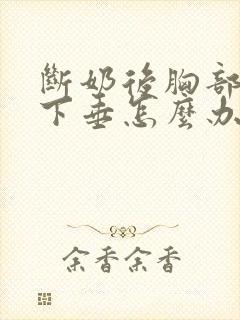 斷奶後胸部
下垂怎麼办
余香余香